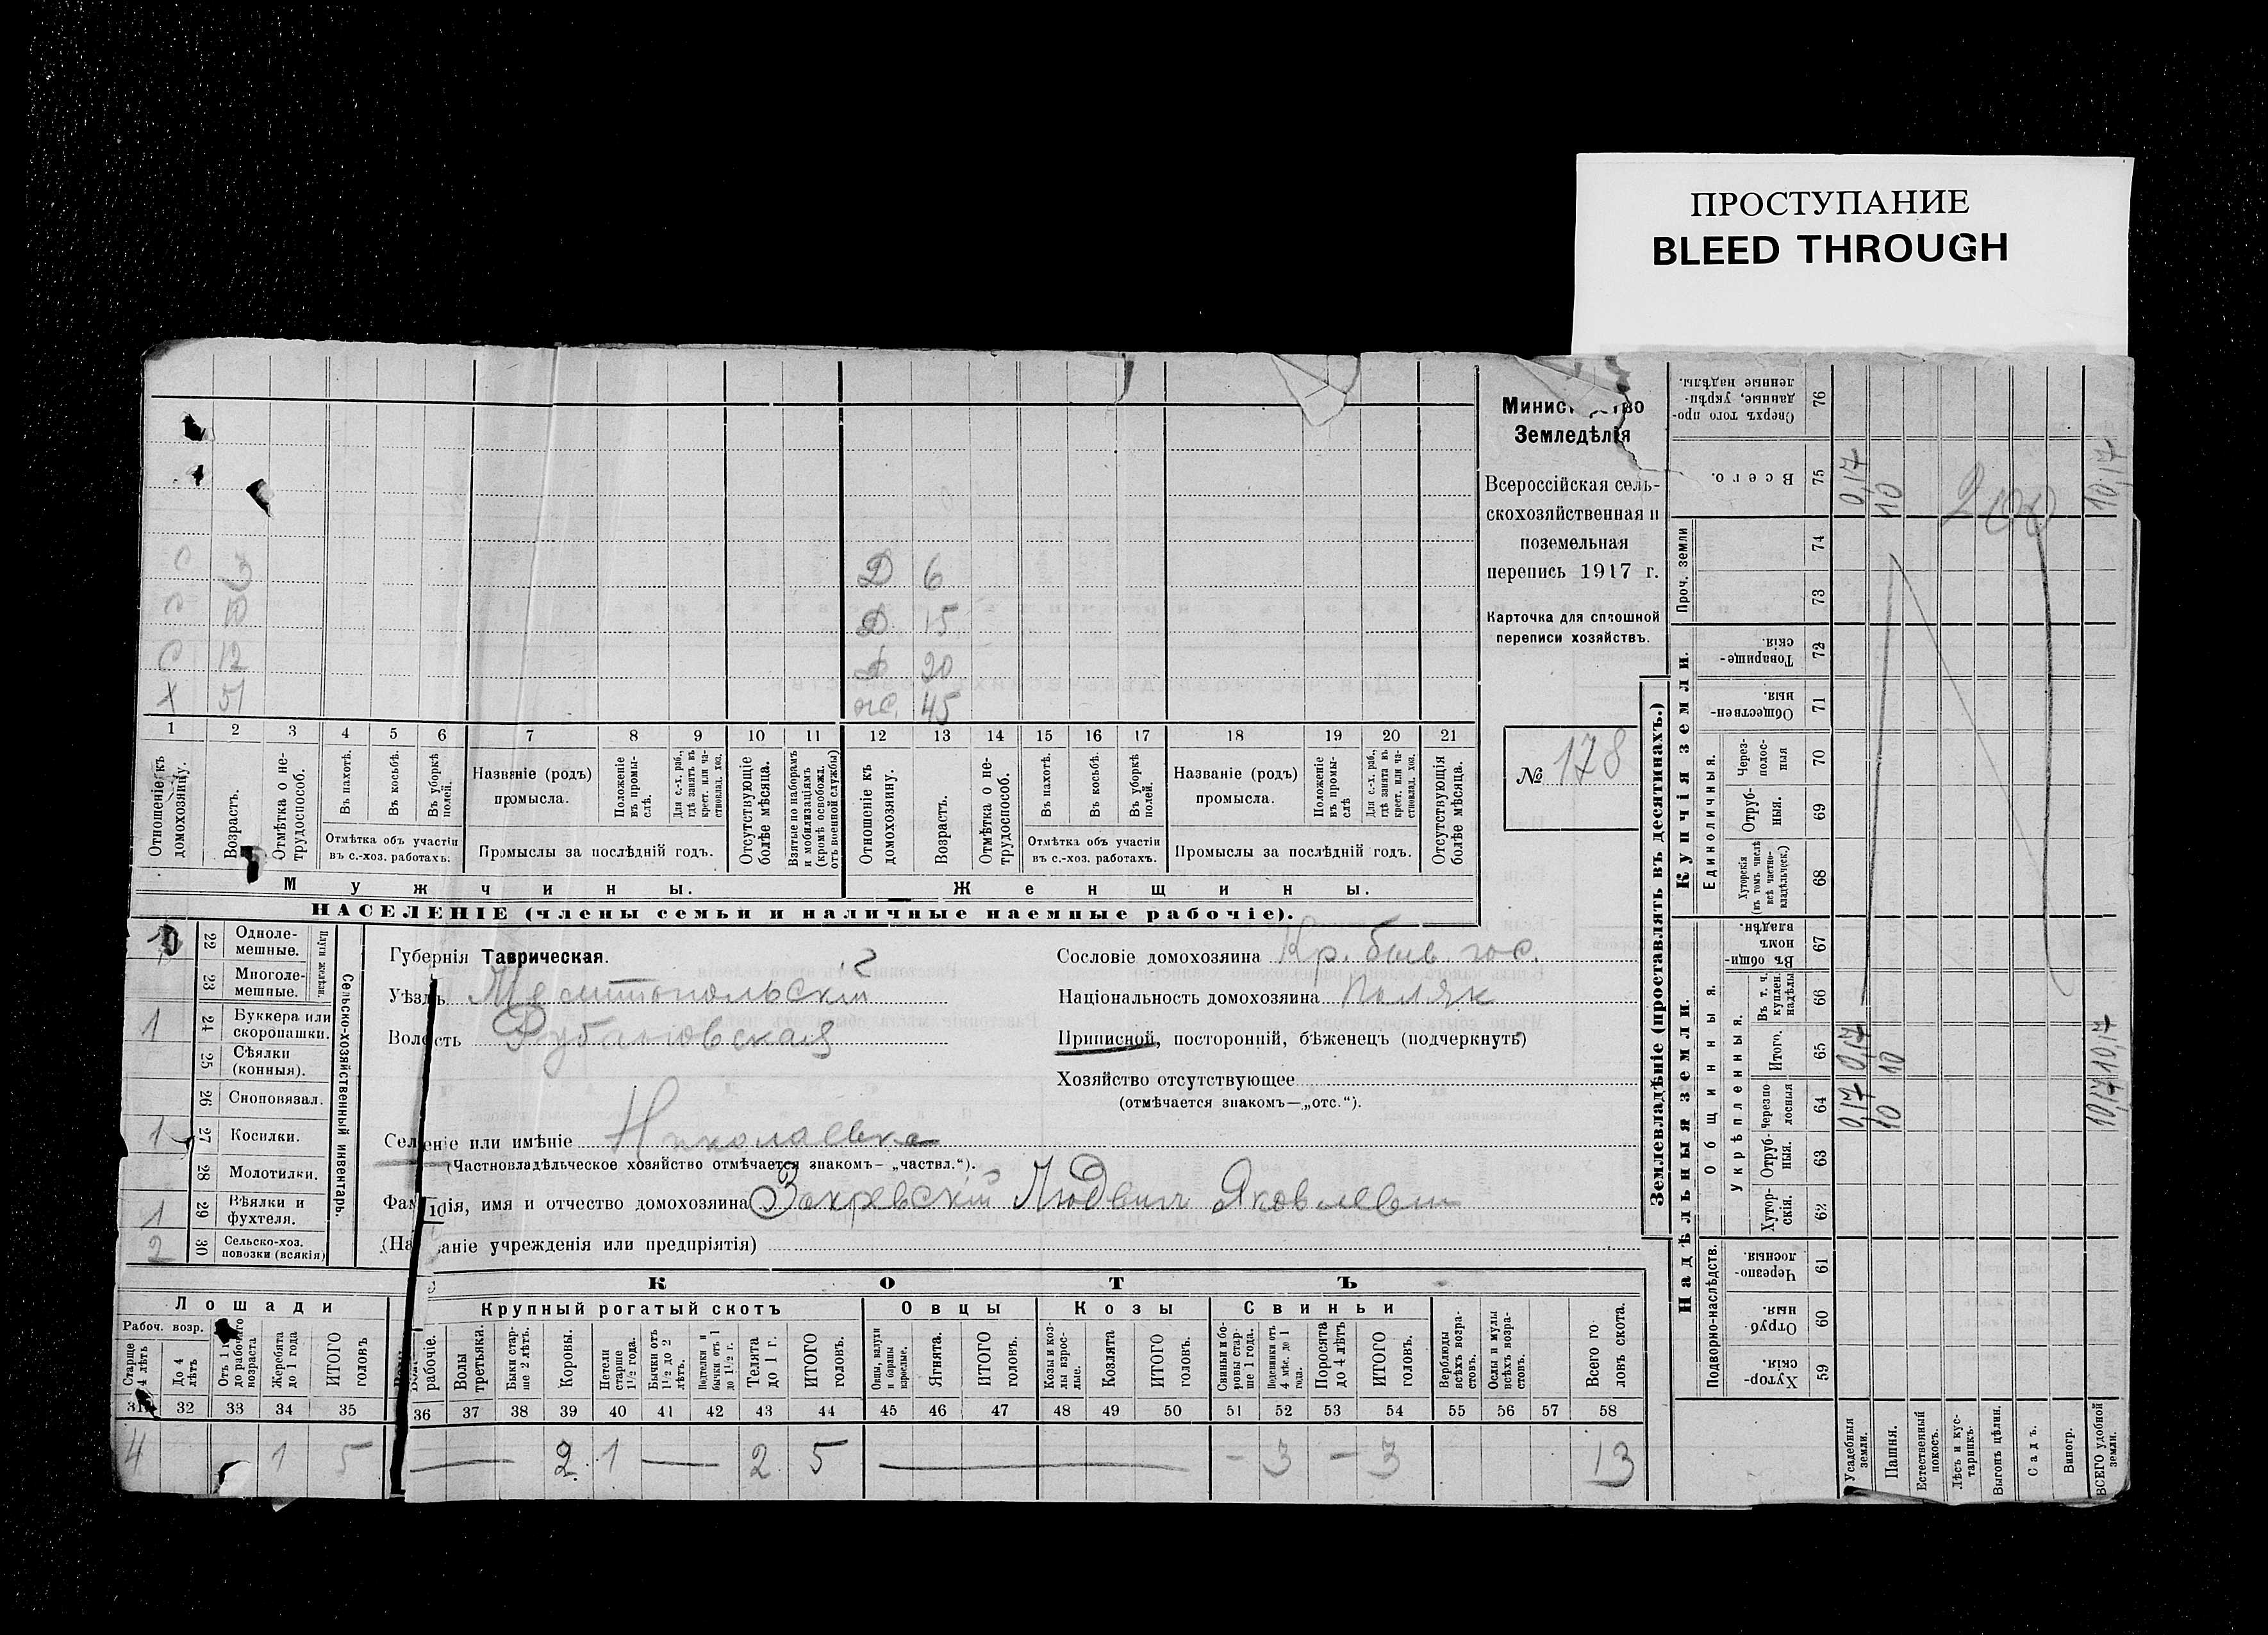 ПРОСТУПАНИЕ
BLEED THROUGH
Министерство
Земледѣлія
Всероссійская сель-
скохозяйственная и
поземельная
перепись 1917 г.
Карточка для сплошной
переписи хозяйствъ.
№ 178
С 3 Д 6
С 10 Д 15
С 12 Д 20
Х 51 ж. 45
1 2 3 4 5 6 7 8 9 10 11 12 13 14 15 16 17 18 19 20 21
Отношеніе къ домохозяину.
Возрастъ.
Отмѣтка о не-трудоспособ.
Въ пахотѣ.
Въ косьбѣ.
Въ уборкѣ полей.
Отмѣтка объ участіи въ с.-хоз. работахъ.
Названіе (родъ) промысла.
Положеніе въ промы-слѣ.
Для с.-х. раб., гдѣ занятъ въ крест. или ча-стновлад. хоз.
Промыслы за послѣдній годъ.
Отсутствующіе болѣе мѣсяца.
Взятые по наборамъ и мобилизаціямъ (кромѣ освобожд. отъ военной службы)
Отношеніе къ домохозяину.
Возрастъ.
Отмѣтка о не-трудоспособ.
Въ пахотѣ.
Въ косьбѣ.
Въ уборкѣ полей.
Отмѣтка объ участіи въ с.-хоз. работахъ.
Названіе (родъ) промысла.
Положеніе въ промы-слѣ
Для с.-х. раб., гдѣ занята въ крест. или ча-стновлад. хоз.
Промыслы за послѣдній годъ.
Отсутствующія болѣе мѣсяца.
Мужчины. Женщины.
НАСЕЛЕНІЕ (члены семьи и наличные наемные рабочіе).
Сельско-хозяйственный инвентарь.
Плуги желѣзн.
1 22 Одноле-мешные.
23 Многоле-мешные.
1 24 Буккера или скоропашки.
25 Сѣялки (конныя).
26 Сноповязал.
1 27 Косилки.
28 Молотилки.
1 29 Вѣялки и фухтеля.
2 30 Сельско-хоз. повозки (всякія)
Губернія Таврическая.
Уѣздъ Мелитопольскій
Волость Рубановская
Селеніе или имѣніе Николаевка
(Частновладѣльческое хозяйство отмѣчается знакомъ— „частвл.“).
Фамилія, имя и отчество домохозяина Закревскій Людвиг Яковлевич
(Названіе учрежденія или предпріятія)
Сословіе домохозяина Кр. быв. гос.
Національность домохозяина поляк
Приписной, посторонній, бѣженецъ (подчеркнуть)
Хозяйство отсутствующее
(отмѣчается знакомъ—„отс.“).
СКОТЪ
Лошади
Рабоч. возр.
Старше 4 лѣтъ
До 4 лѣтъ
Отъ 1 г. до рабочаго возраста
Жеребята до 1 года
ИТОГО головъ
Крупный рогатый скотъ
рабочіе.
Волы третьяки.
Быки стар-ше 2 лѣтъ.
Коровы.
Нетели старше 1½ года.
Бычки отъ 1½ до 2 лѣтъ.
Подтелки и бычки отъ 1 до 1½ г.
Телята до 1 г.
ИТОГО головъ.
Овцы
Овцы, валухи и бараны взрослые.
Ягнята.
ИТОГО головъ.
Козы
Козы и коз-лы взрос-лые.
Козлята
ИТОГО головъ.
Свиньи
Свиньи и бо-ровы стар-ше 1 года.
Подсвинки отъ 4 мѣс. до 1 года.
Поросята до 4 лѣтъ
ИТОГО головъ.
Верблюды всѣхъ возра-стовъ.
Ослы и мулы всѣхъ возра-стовъ.
Всего го ловъ скота.
31 32 33 34 35 36 37 38 39 40 41 42 43 44 45 46 47 48 49 50 51 52 53 54 55 56 57 58
4 1 5 — 2 1 — 2 5 — - 3 — 3 13
Землевладѣніе (проставлять въ десятинахъ.)
Надѣльныя земли. Купчія земли. Проч. земли
Подворно-наслѣдств.
Общинныя.
Укрѣпленныя.
Единоличныя.
59 Хутор-скія.
60 Отруб-ныя.
61 Черезпо-лосныя.
62 Хутор-скія.
63 Отруб-ныя.
64 Черезпо лосныя
65 Итого.
66 Въ т. ч. куплен. надѣлы
67 Въ общи-номъ владѣн.
68 Хуторскія (въ томъ числѣ всѣ частно-владѣльческ.)
69 Отруб-ныя.
70 Через-полос-ныя
71 Обществен-ныя.
72 Товарище-скія.
73
74
75 Всего.
76 Сверхъ того про-данные, укрѣп-ленные надѣлы.
Усадебныя земли. 0,17 0,17 0,17
Пашня. 10 10 10
Естественный покосъ.
Лѣсъ и кус-тарникъ.
Выгонъ цѣлин.
Садъ.
Виногр.
ВСЕГО удобной земли. 10,17 10,17 10,17
200